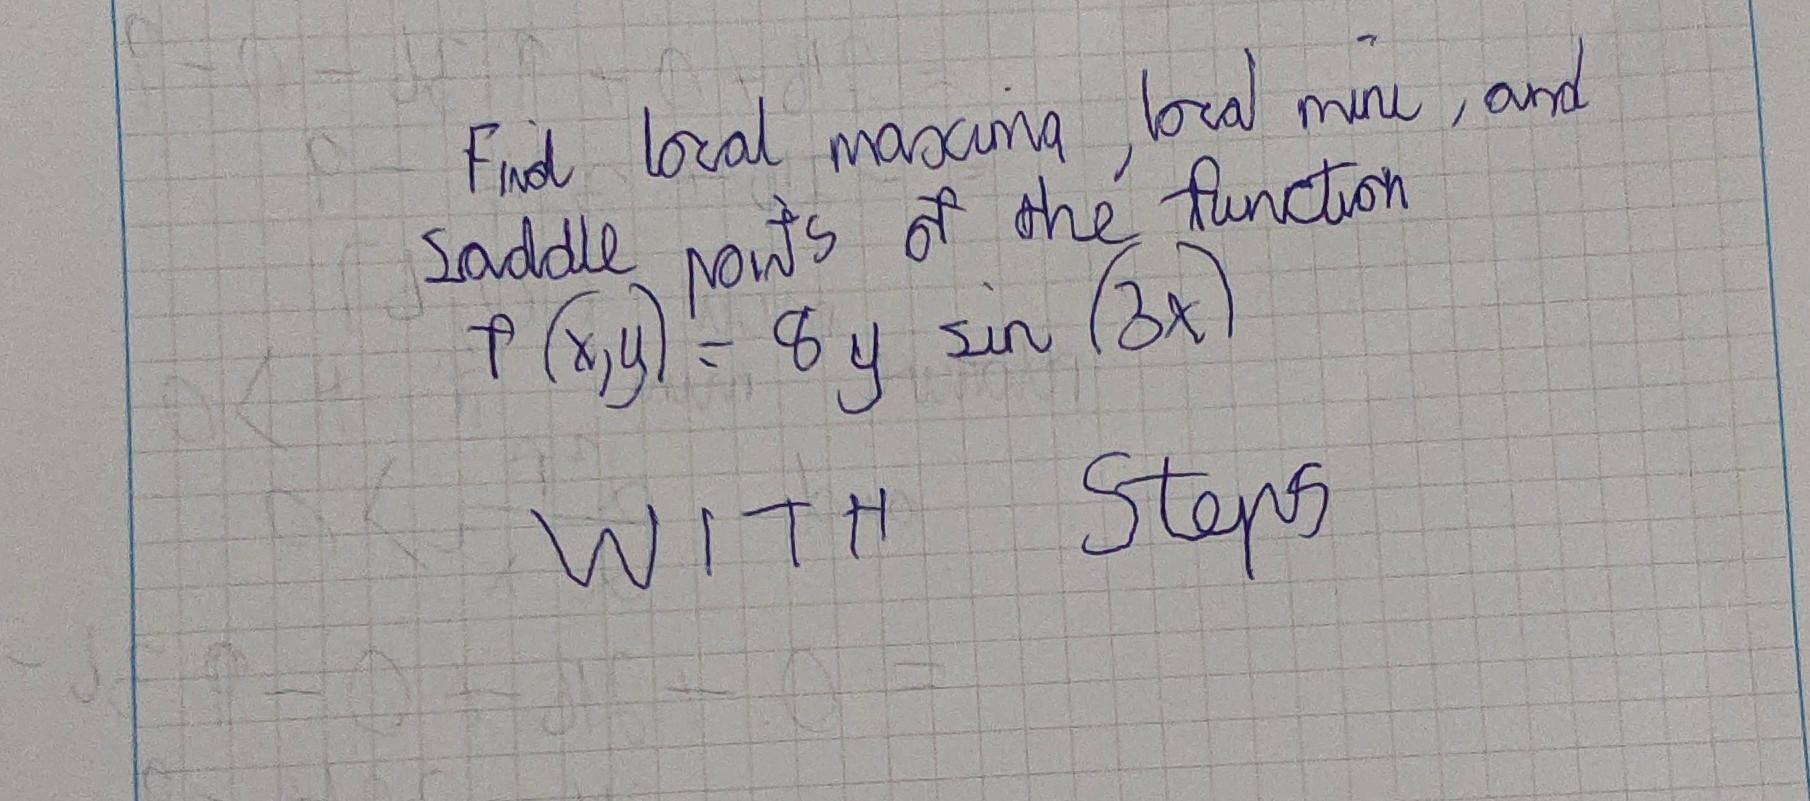 Find local maxima, local mini, and
saddle points of the function
f(x,y) = 8y sin (3x)
WITH Steps